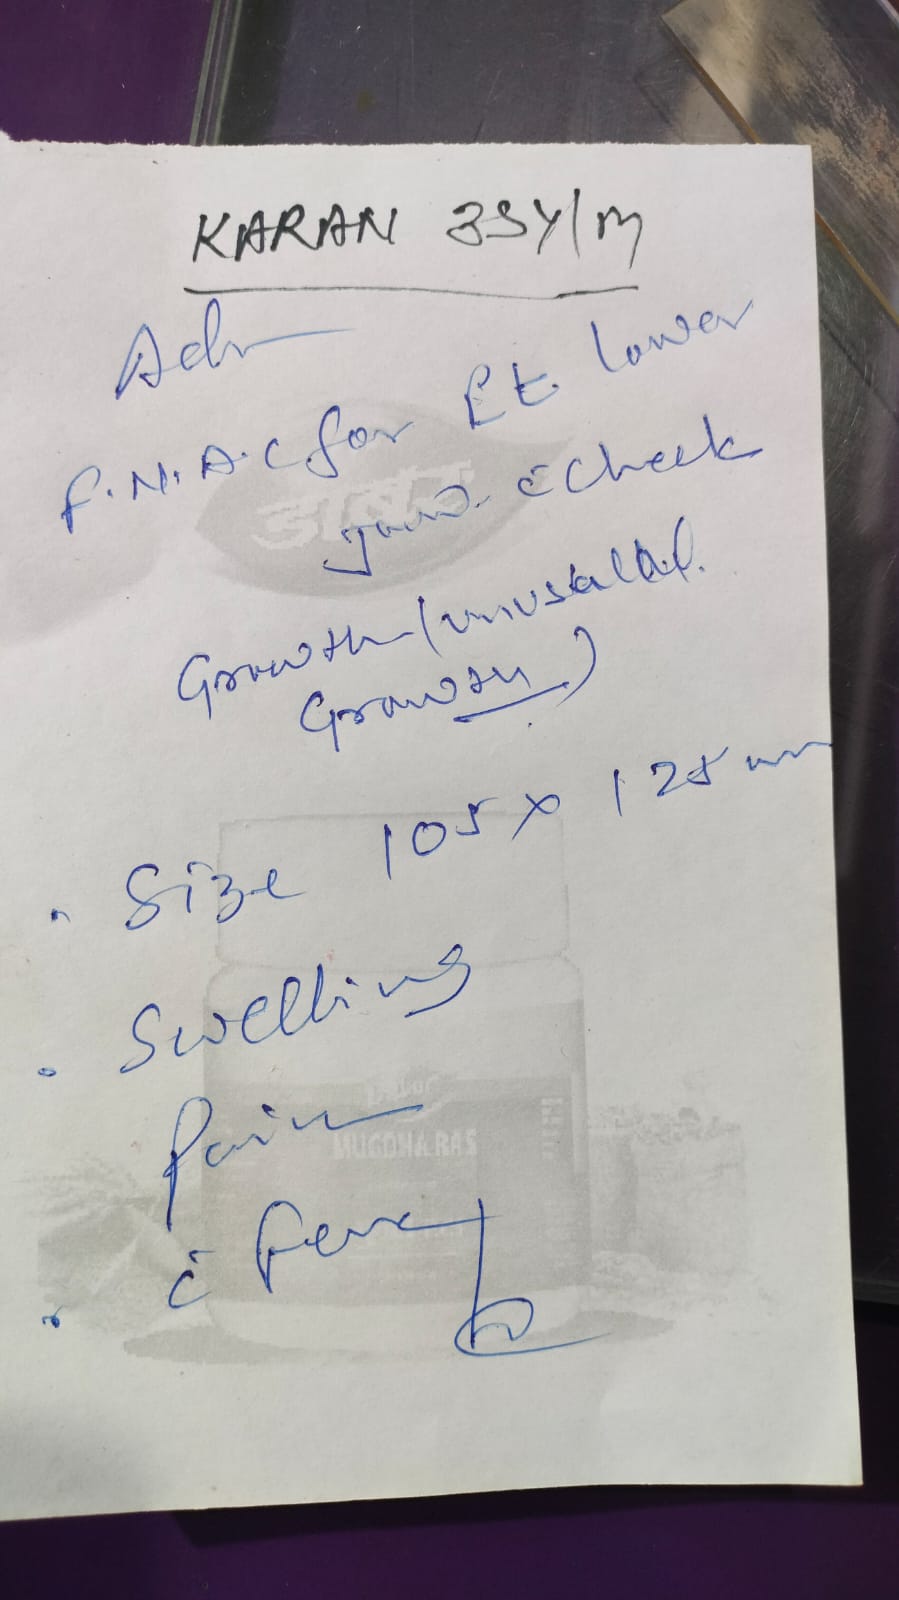 KARAN 35Y/M
Adv
F.N.A.C for Rt. lower
jaw. c̄ Cheek
Growth (unusallal.
Growth)
• Size 105 x 128 mm
• Swelling
Pain
• c̄ Fever
डाबर
Dabur
MUGDHA RAS